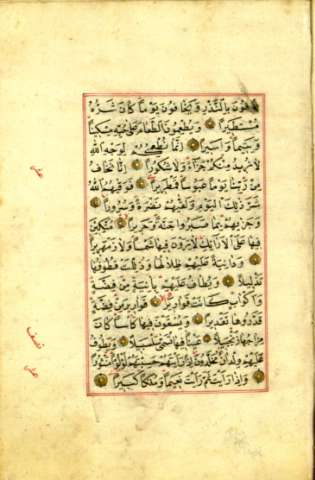 يُوفُونَ بِالنَّذْرِ وَيَخَافُونَ يَوْمًا كَانَ شَرُّهُ
مُسْتَطِيرًا وَيُطْعِمُونَ الطَّعَامَ عَلَى حُبِّهِ مِسْكِينًا
وَيَتِيمًا وَأَسِيرًا إِنَّمَا نُطْعِمُكُمْ لِوَجْهِ اللَّهِ
لَا نُرِيدُ مِنْكُمْ جَزَاءً وَلَا شُكُورًا إِنَّا نَخَافُ
مِنْ رَبِّنَا يَوْمًا عَبُوسًا قَمْطَرِيرًا فَوَقَاهُمُ اللَّهُ
شَرَّ ذَلِكَ الْيَوْمِ وَلَقَّاهُمْ نَضْرَةً وَسُرُورًا
وَجَزَاهُمْ بِمَا صَبَرُوا جَنَّةً وَحَرِيرًا مُتَّكِئِينَ
فِيهَا عَلَى الْأَرَائِكِ لَا يَرَوْنَ فِيهَا شَمْسًا وَلَا زَمْهَرِيرًا
وَدَانِيَةً عَلَيْهِمْ ظِلَالُهَا وَذُلِّلَتْ قُطُوفُهَا
تَذْلِيلًا وَيُطَافُ عَلَيْهِمْ بِآنِيَةٍ مِنْ فِضَّةٍ
وَأَكْوَابٍ كَانَتْ قَوَارِيرَا قَوَارِيرَ مِنْ فِضَّةٍ
قَدَّرُوهَا تَقْدِيرًا وَيُسْقَوْنَ فِيهَا كَأْسًا كَانَ
مِزَاجُهَا زَنْجَبِيلًا عَيْنًا فِيهَا تُسَمَّى سَلْسَبِيلًا وَيَطُوفُ
عَلَيْهِمْ وِلْدَانٌ مُخَلَّدُونَ إِذَا رَأَيْتَهُمْ حَسِبْتَهُمْ لُؤْلُؤًا مَنْثُورًا
وَإِذَا رَأَيْتَ ثَمَّ رَأَيْتَ نَعِيمًا وَمُلْكًا كَبِيرًا